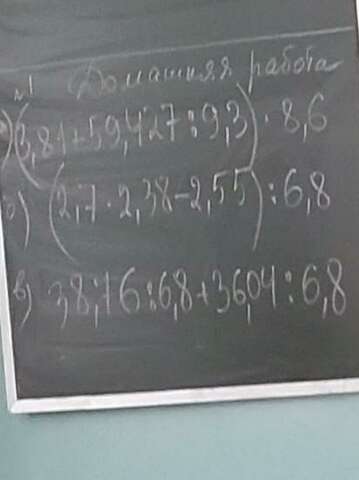 №1 Домашняя работа
а) (3,81+59,427:9,3)·8,6
б) (2,7·2,38-2,55):6,8
в) 38,76:6,8+36,04:6,8